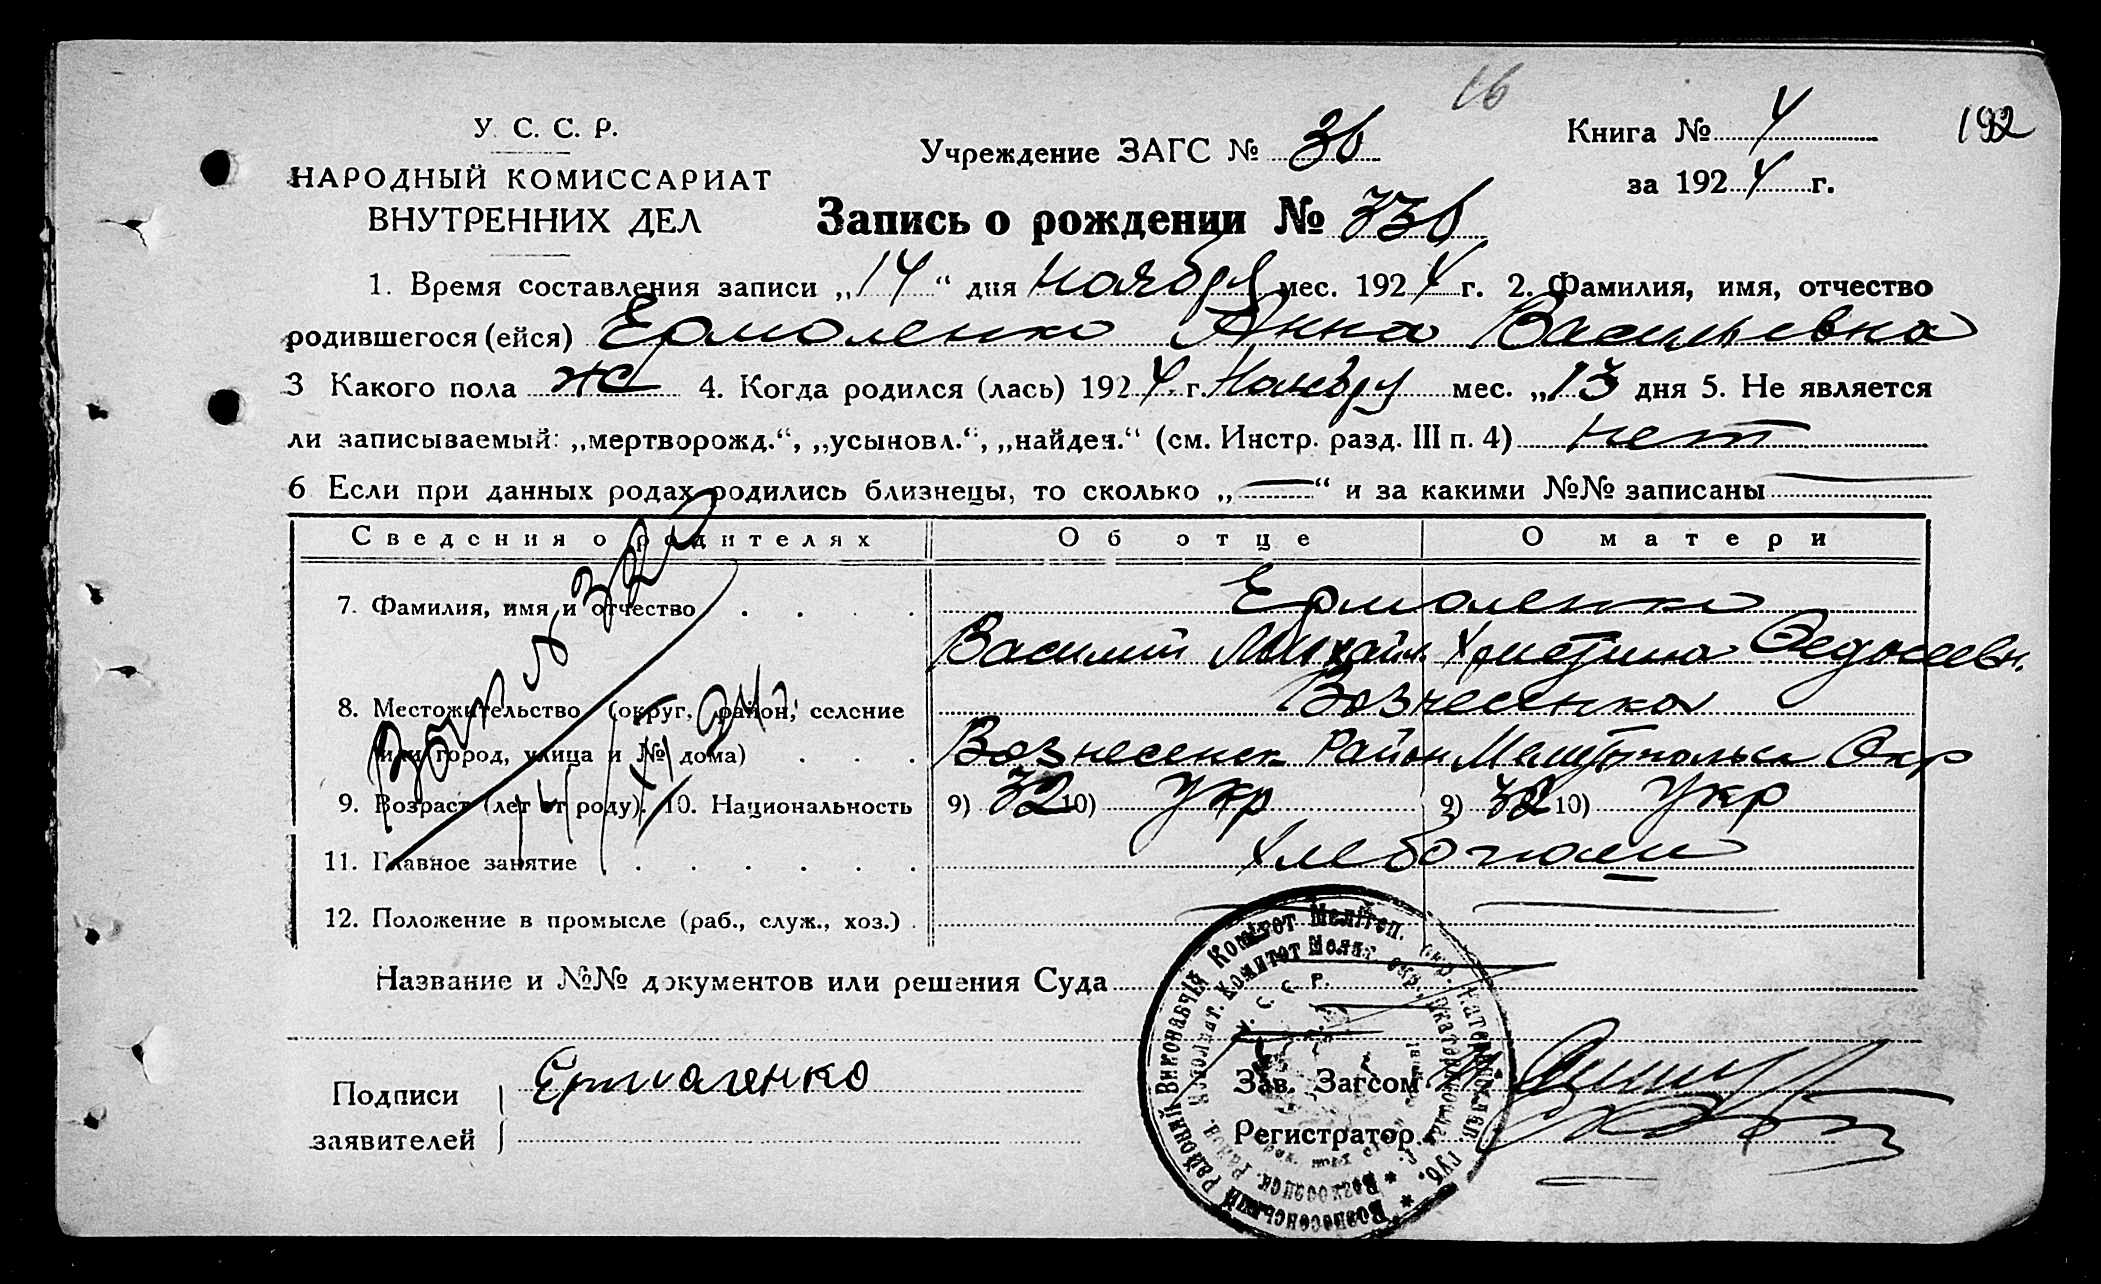 16
У. С. С. Р.
НАРОДНЫЙ КОМИССАРИАТ
ВНУТРЕННИХ ДЕЛ
Учреждение ЗАГС № 36
Книга № 4
192
за 1924 г.
Запись о рождении № 336
1. Время составления записи „14“ дня Ноября мес. 1924 г. 2. Фамилия, имя, отчество
родившегося (ейся) Ермоленко Анна Васильевна
3 Какого пола ж 4. Когда родился (лась) 1924 г. Ноябру мес. „13 дня 5. Не является
ли записываемый: „мертворожд.“, „усыновл.“, „найден.“ (см. Инстр. разд. III п. 4) нет
6 Если при данных родах родились близнецы, то сколько „—“ и за какими №№ записаны —
Сведения о родителях Об отце О матери
7. Фамилия, имя и отчество Ермоленко
Василий Михайл. Христина Федосеевн.
8. Местожительство (округ, район, селение Вознесенка
или город, улица и № дома) Вознесенск Район Мелитопольск Окр
9. Возраст (лет от роду). 10. Национальность 9) 32 10) Укр 9) 32 10) Укр
11. Главное занятие Хлебопаши
12. Положение в промысле (раб., служ., хоз.)
Название и №№ документов или решения Суда
Подписи
заявителей
Ермоленко
Зав. Загсом
Регистратор
Вознесенський Районний Виконавчій Комітет Меліtоп. окр. Катеринослав. губ.
У. С. С. Р.